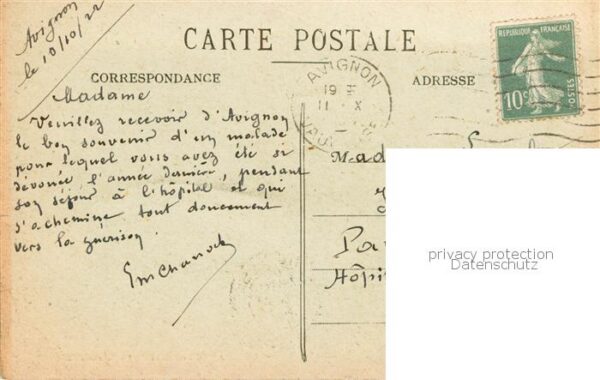 Avignon
le 10/10/22
CARTE POSTALE
CORRESPONDANCE
ADRESSE
RÉPUBLIQUE FRANÇAISE
10c
POSTES
AVIGNON
19
Madame
Veuillez recevoir d'Avignon
le bon souvenir d'un malade
pour lequel vous avez été si
dévouée l'année dernière, pendant
son séjour à l'hôpital et qui
s'achemine tout doucement
vers la guérison.
Mad
Pa
Hôpi
privacy protection
Datenschutz